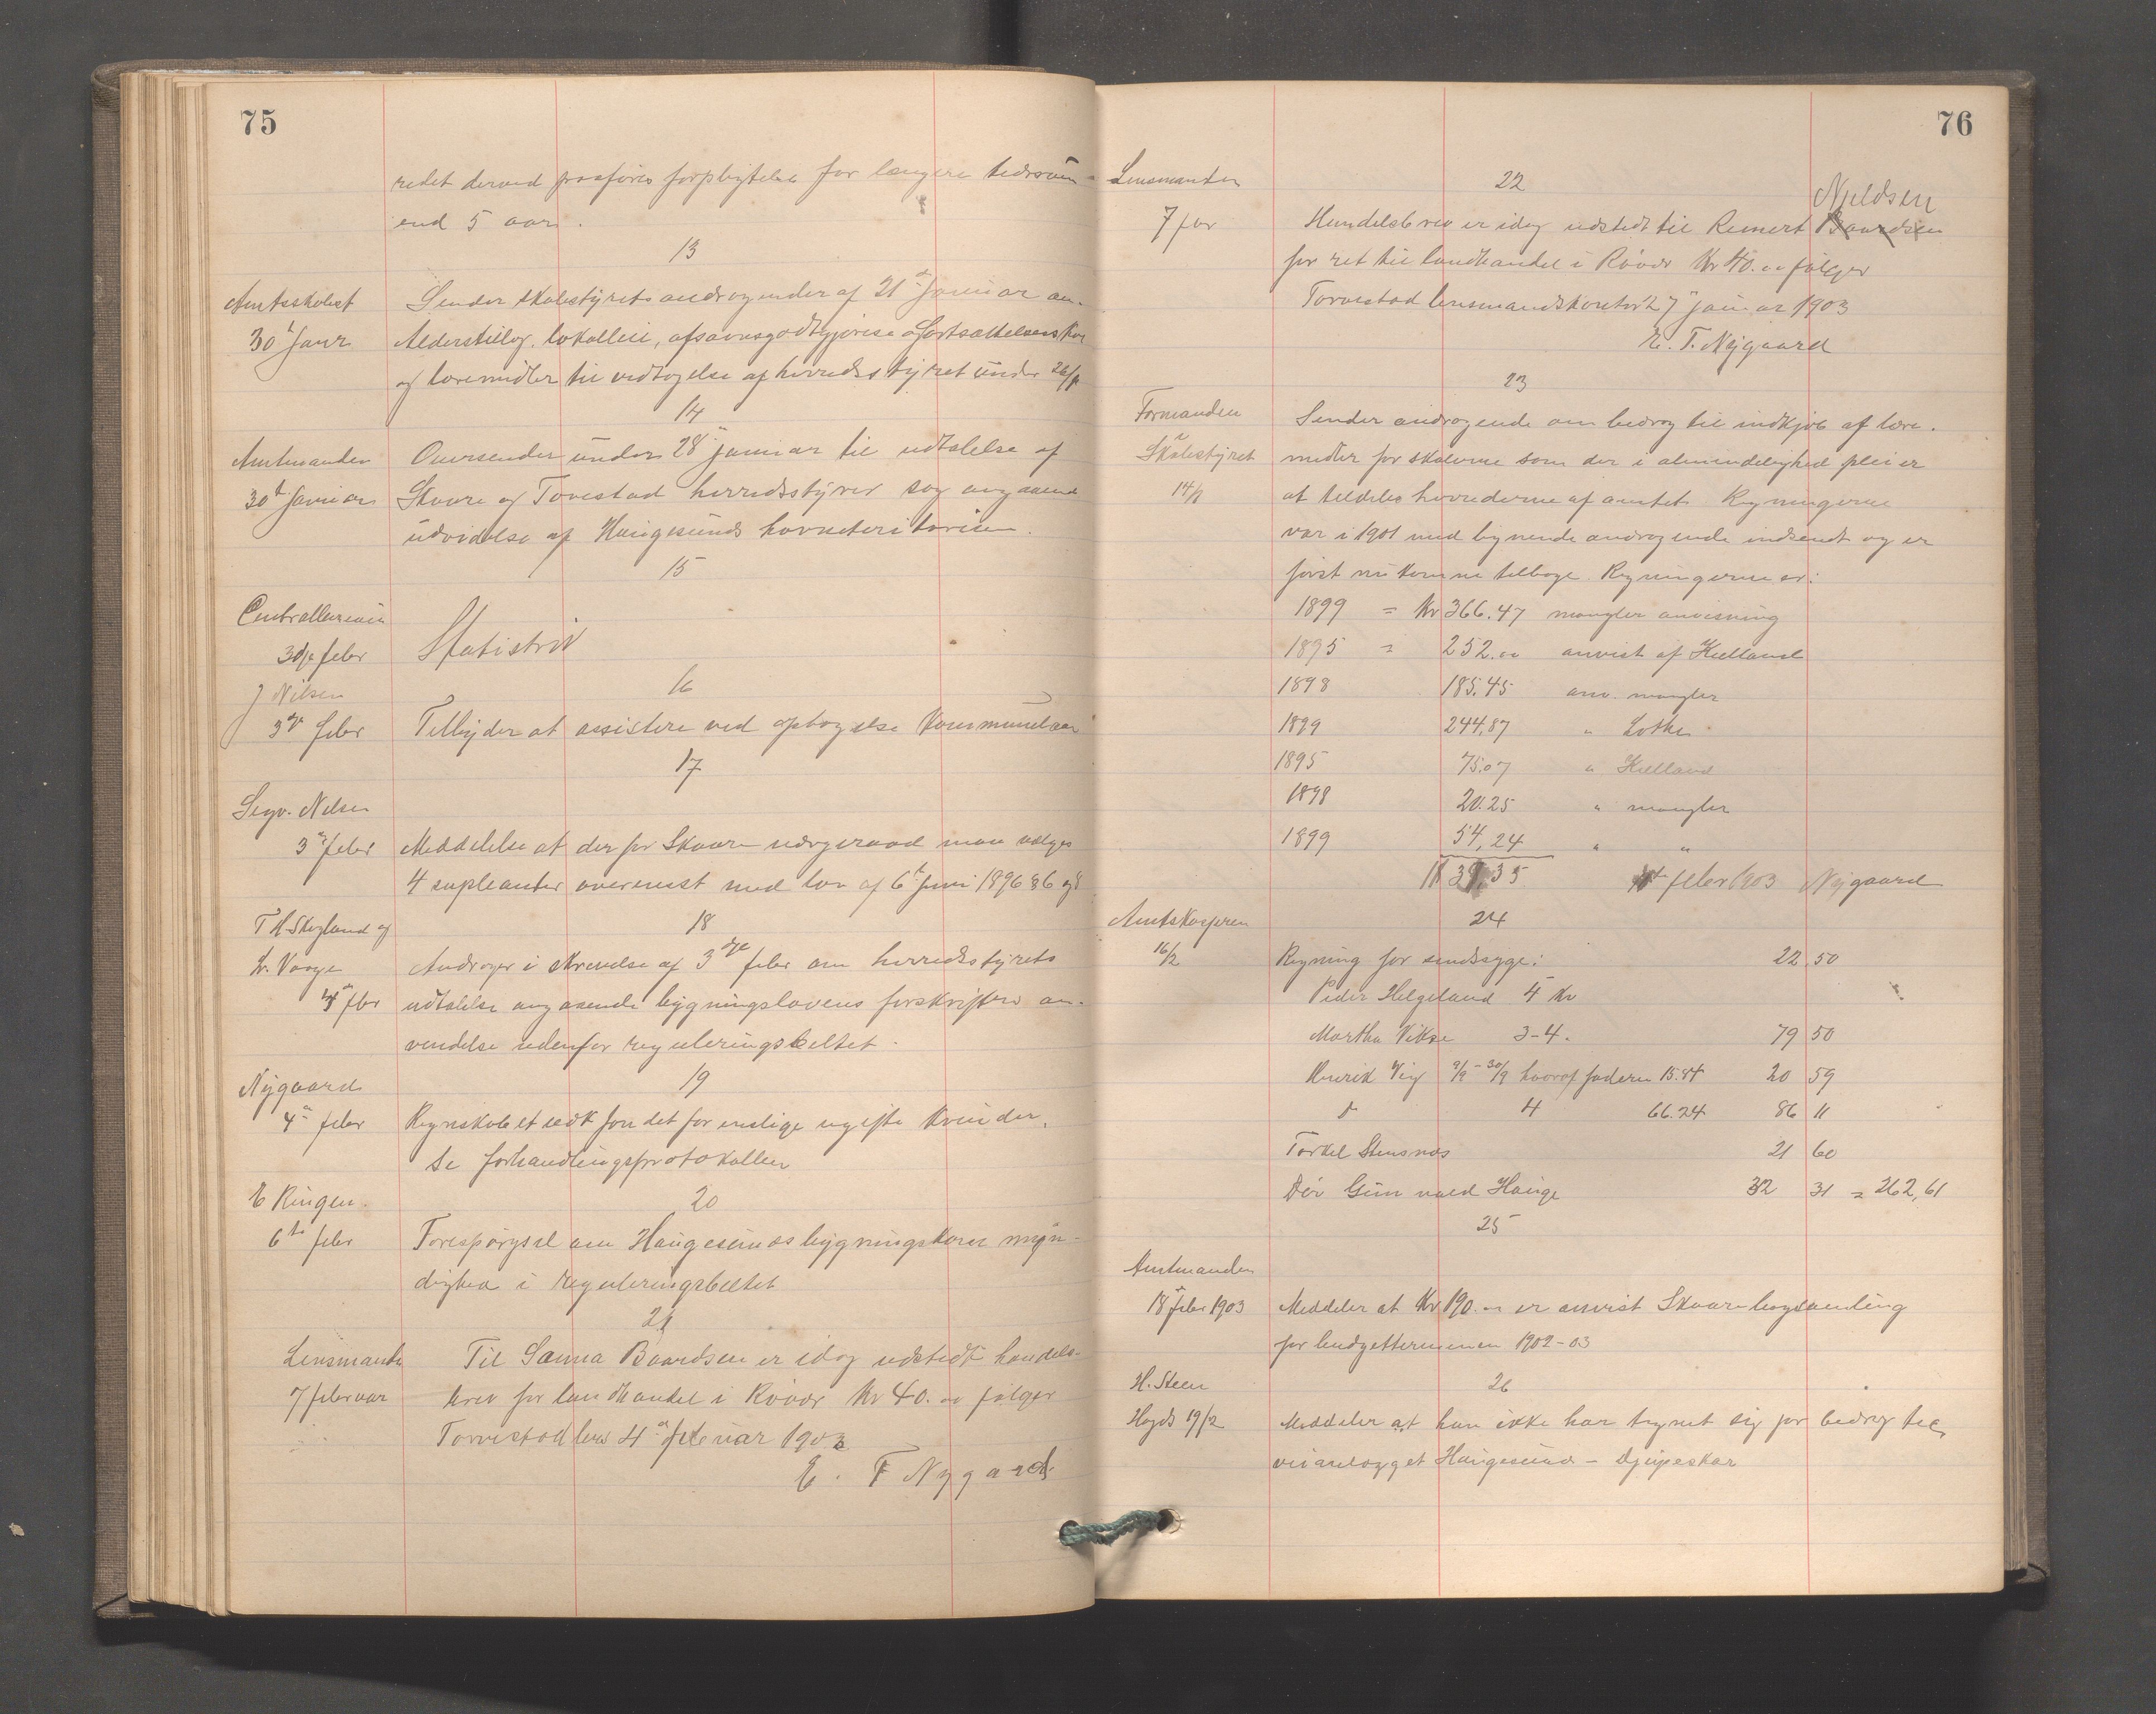 75
redet derved paaføres forpligtelse for længere tidsrum
end 5 aar.
13
Amtsskolest
30te Janr
Sender skolestyrets andragender af 21de Januar an.
Alderstillæg, lokalleie, afsavnsgodtgjørelse &
og læremidler til vedtagelse af herredsstyret under
14
Amtmanden
30te Januar
Oversender under 28de januar til udtalelse af
Skaare og Torvestad herredsstyrer sag angaaende
udvidelse af Haugesunds havneteritorium.
15
3die febr
Statistik
16
J Nilsen
3de febr
Tilbyder at assistere ved optagelse kommunelaan
17
Sagv. Nilsen
3de febr
Meddelelse at der for Skaare værgeraad maa vælges
4 supleanter overenst med lov af 6te Juni 1896 §6 og
18
T H Skogland og
febr
Andrager i skrivelse af 3die febr om herredsstyrets
udtalelse angaaende bygningslovens forskrifters an-
vendelse udenfor reguleringsbeltet.
19
Nygaard
4de febr
Regnskabet vedk fondet for enslige ugifte kvinder.
Se forhandlingsprotokollen
20
E Ringen.
6te febr
Forespørgsel om Haugesunds bygningskom. myn-
dighed i reguleringsbeltet
21
Lensmanden
7 februar
Til Sanna Baardsen er idag udstedt handels-
brev for landhandel i Røvær Kr 40.00 følger
Torvestad lens 4de februar 1903
E. T Nygaard
76
Lensmanden
7 far
22
Nieldsen
Handelsbrev er idag udstedt til Reinert Baardsen
for ret til landhandel i Røvær Kr 40.00 følger
Torvestad lensmandskontor 7 januar 1903
E. T. Nygaard
23
Formanden
Skolestyret
14/2
Sender andragende om bidrag til indkjøb af lære-
midler for skolerne som der i almindelighed pleier
at tildeles herrederne af amtet. Regningerne
var i 1901 med lignende andragende indsendt og er
først nu komne tilbage. Regningerne er:
1899 = Kr 366.47 mangler anvisning
1895 = 252.00 anvist af Kielland
1898 185.45 anv. mangler
1899 244,87 " Lothe
1895 75.07 " Kielland
1898 20.25 " mangler
1899 54,24 " "
febr 1903 Nygaard
24
Amtskasseren
16/2
Regning for sindssyge: 22 50
Peder Helgeland 4 Kv
Martha Vikse 3-4. 79 50
Henrik Vig 9/9 - 30/9 hvoraf faderen 15.84 20 59
d 4 66.24 86 11
Torkel Stensnæs 21 60
Gunvald Hauge 32 31 = 262,61
25
Amtmanden
18 febr 1903
Meddeler at Kr 190.00 er anvist Skaare bogsamling
for budgetterminen 1902-03
26
H. Steen
19/2
Meddeler at han ikke har tegnet sig for bidrag til
veianlægget Haugesund - Djupeskar